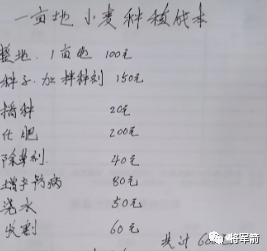 一亩地小麦种植成本
整地.1亩地 100元
种子.加拌种剂 150元
播种 20元
化肥 200元
除草剂. 40元
增产防病 80元
浇水 50元
收割 60元
共计
将军箭